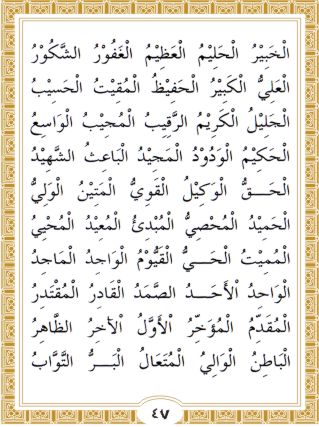 الْخَبِيْرُ الْحَلِيْمُ الْعَظِيْمُ الْغَفُوْرُ الشَّكُوْرُ
الْعَلِيُّ الْكَبِيْرُ الْحَفِيْظُ الْمُقِيْتُ الْحَسِيْبُ
الْجَلِيْلُ الْكَرِيْمُ الرَّقِيْبُ الْمُجِيْبُ الْوَاسِعُ
الْحَكِيْمُ الْوَدُوْدُ الْمَجِيْدُ الْبَاعِثُ الشَّهِيْدُ
الْحَـــقُّ الْوَكِيْلُ الْقَوِيُّ الْمَتِيْنُ الْوَلِيُّ
الْحَمِيْدُ الْمُحْصِيُّ الْمُبْدِئُ الْمُعِيْدُ الْمُحْيِيُ
الْمُمِيْتُ الْحَـــيُّ الْقَيُّوْمُ الْوَاجِدُ الْمَاجِدُ
الْوَاحِدُ الْأَحَـــدُ الصَّمَدُ الْقَادِرُ الْمُقْتَدِرُ
الْمُقَدِّمُ الْمُؤَخِّرُ الْأَوَّلُ الْآخِرُ الظَّاهِرُ
الْبَاطِنُ الْوَالِيُ الْمُتَعَالُ الْبَـــرُّ التَّوَّابُ
٤٧